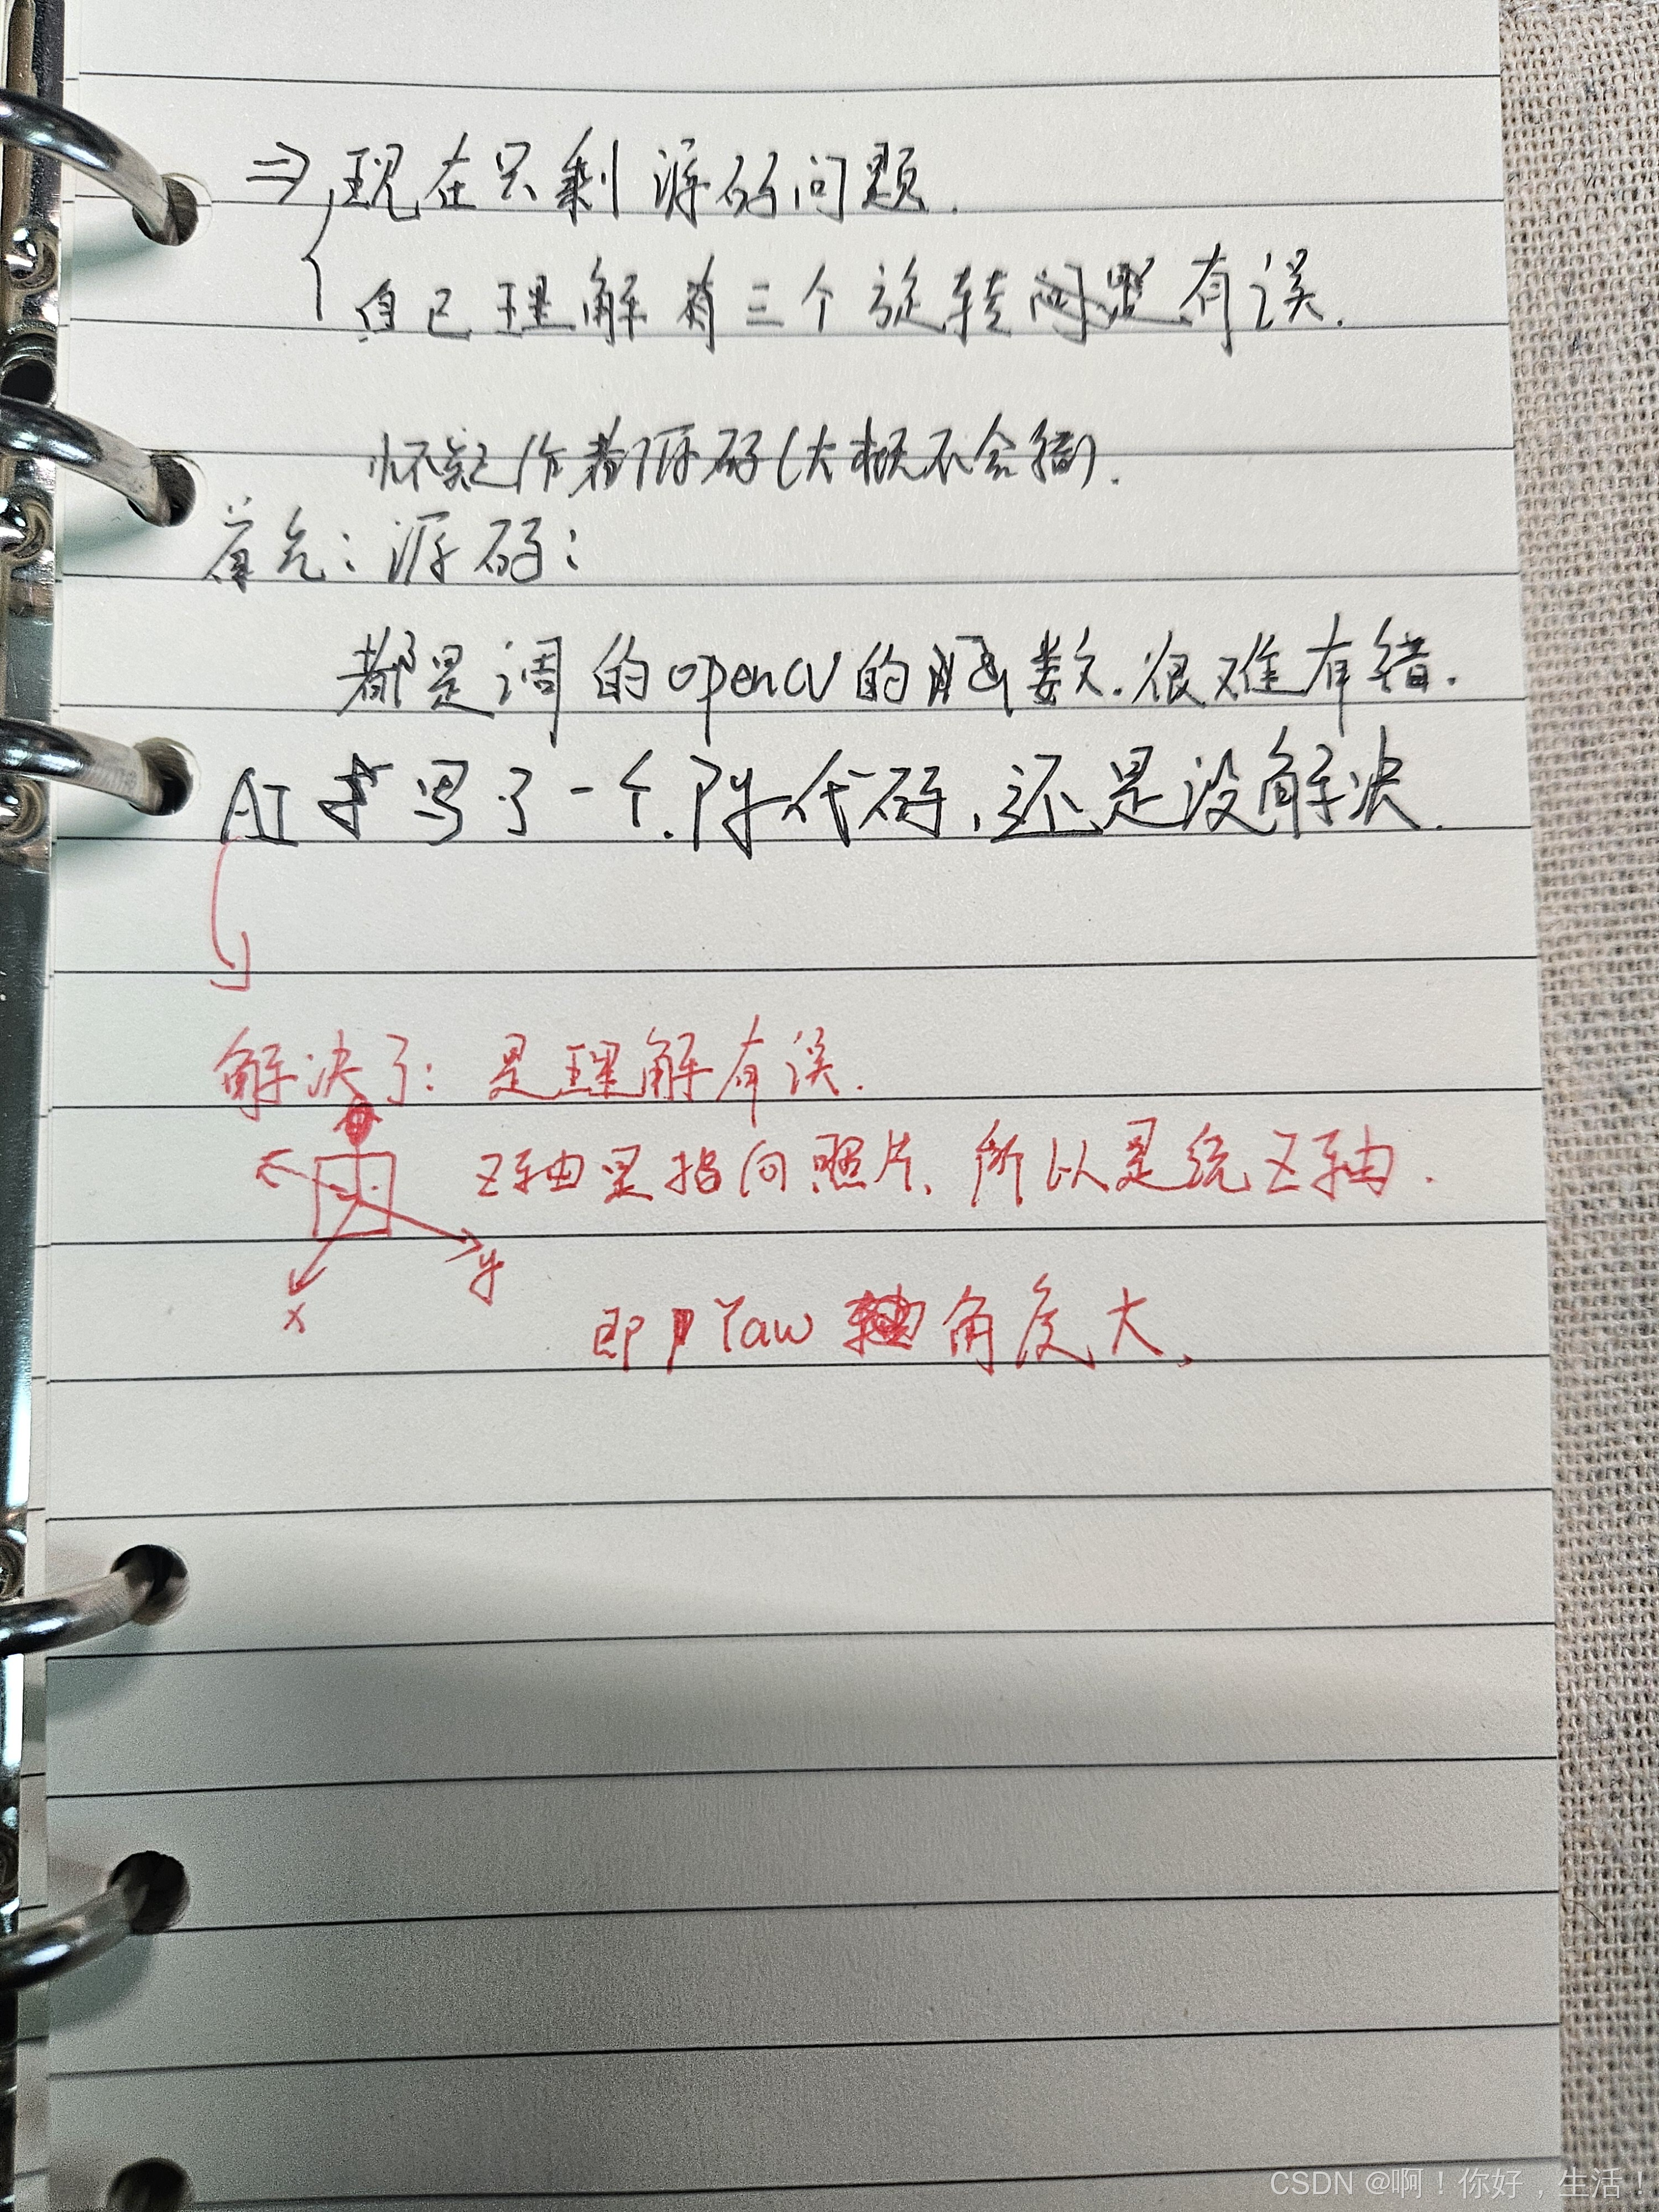 ⇒ 现在只剩源码问题.
自己理解有三个旋转问题有误.
怀疑作者源码(大概不会错).
首先: 源码:
都是调的opencv的函数.很难有错.
AI写了一个.py代码,还是没解决.
解决了: 是理解有误.
Z轴是指向照片、所以是绕Z轴.
y
x
即Yaw轴角度大、
CSDN @啊！你好，生活！